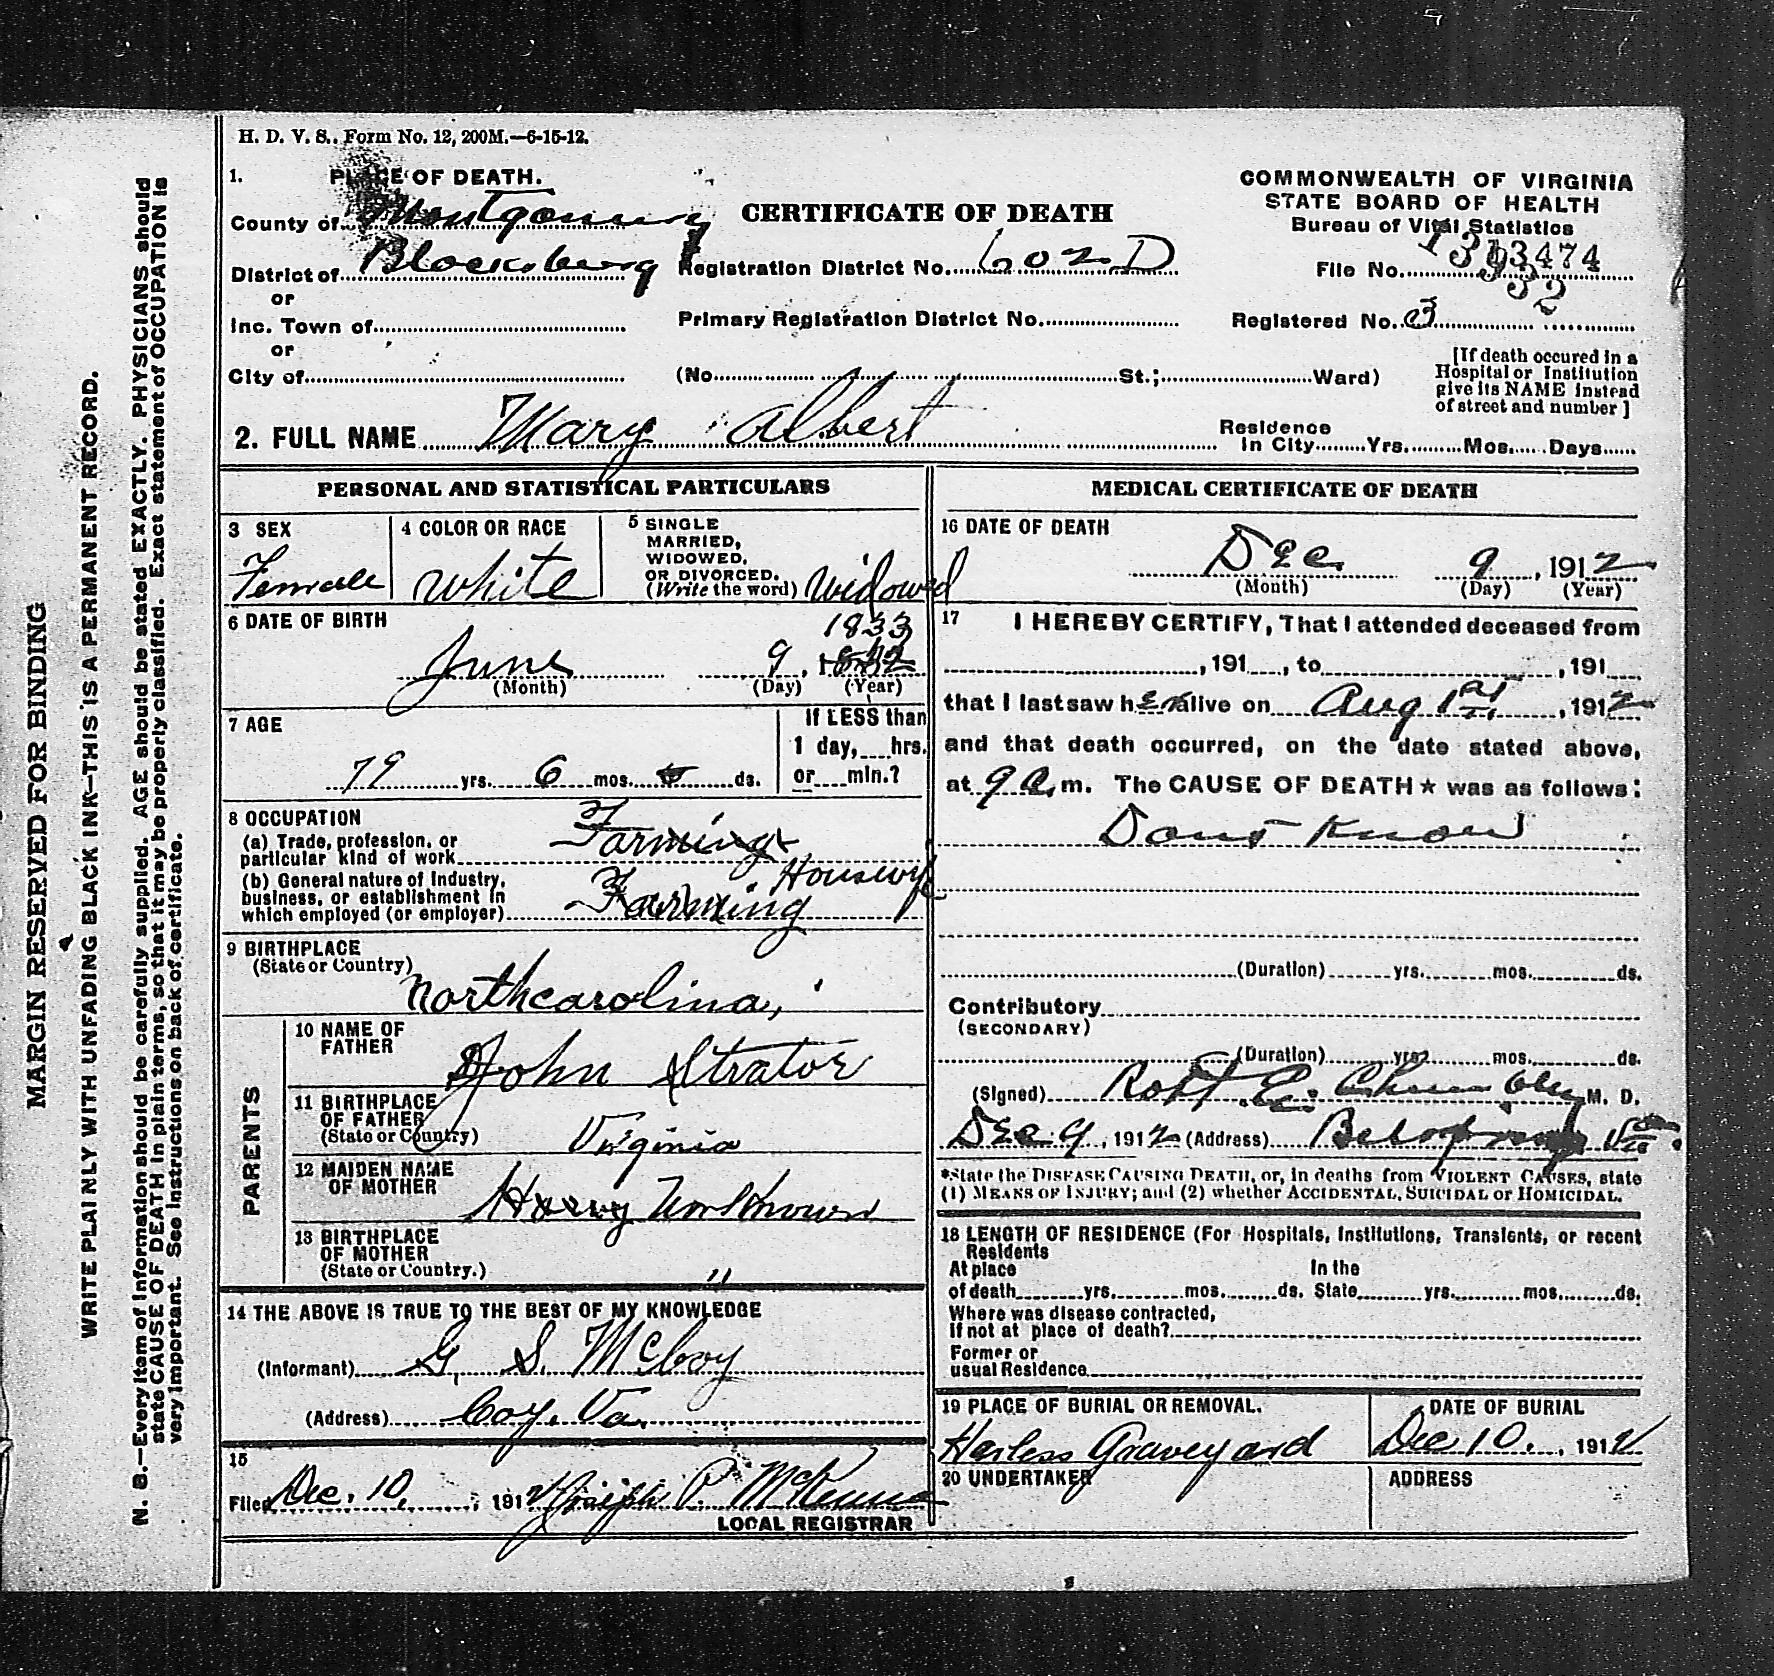 H. D. V. S. Form No. 12, 200M.—6-15-12.
1. PLACE OF DEATH.
County of Montgomery
District of Blacksburg
or
Inc. Town of
or
City of
CERTIFICATE OF DEATH
Registration District No. 602D
Primary Registration District No.
(No. St.; Ward)
COMMONWEALTH OF VIRGINIA
STATE BOARD OF HEALTH
Bureau of Vital Statistics
File No.
Registered No. 3
[If death occured in a
Hospital or Institution
give its NAME instead
of street and number]
2. FULL NAME Mary Albert
Residence
In City Yrs. Mos. Days
PERSONAL AND STATISTICAL PARTICULARS
3 SEX
Female
4 COLOR OR RACE
White
5 SINGLE
MARRIED,
WIDOWED,
OR DIVORCED.
(Write the word) Widowed
6 DATE OF BIRTH
1833
June 9, 1832
(Month) (Day) (Year)
7 AGE
79 yrs. 6 mos. ds.
If LESS than
1 day, hrs.
or min.?
8 OCCUPATION
(a) Trade, profession, or
particular kind of work Farming
(b) General nature of Industry,
business, or establishment in
which employed (or employer) Farming
Housewife
9 BIRTHPLACE
(State or Country)
Northcarolina,
PARENTS
10 NAME OF
FATHER
John Strator
11 BIRTHPLACE
OF FATHER
(State or Country)
Virginia
12 MAIDEN NAME
OF MOTHER
Unknown
13 BIRTHPLACE
OF MOTHER
(State or Country.)
"
14 THE ABOVE IS TRUE TO THE BEST OF MY KNOWLEDGE
(Informant) G. S. McCoy
(Address) Coy, Va.
15
Filed Dec. 10, 1912 Joseph P. McKenna
LOCAL REGISTRAR
MEDICAL CERTIFICATE OF DEATH
16 DATE OF DEATH
Dec 9, 1912
(Month) (Day) (Year)
17 I HEREBY CERTIFY, That I attended deceased from
, 191 , to , 191
that I last saw her alive on Aug 1st, 1912
and that death occurred, on the date stated above,
at 9 a.m. The CAUSE OF DEATH★ was as follows:
Dont Know
(Duration) yrs. mos. ds.
Contributory
(SECONDARY)
(Duration) yrs. mos. ds.
(Signed) Robt. M. D.
Dec 9, 1912 (Address) Va.
*State the DISEASE CAUSING DEATH, or, in deaths from VIOLENT CAUSES, state
(1) MEANS OF INJURY; and (2) whether ACCIDENTAL, SUICIDAL or HOMICIDAL.
18 LENGTH OF RESIDENCE (For Hospitals, Institutions, Transients, or recent
Residents
At place In the
of death yrs. mos. ds. State yrs. mos. ds.
Where was disease contracted,
If not at place of death?
Former or
usual Residence
19 PLACE OF BURIAL OR REMOVAL.
Harless Graveyard
DATE OF BURIAL
Dec 10, 1912
20 UNDERTAKER
ADDRESS
MARGIN RESERVED FOR BINDING
WRITE PLAINLY WITH UNFADING BLACK INK—THIS IS A PERMANENT RECORD.
N. B.—Every item of information should be carefully supplied. AGE should be stated EXACTLY. PHYSICIANS should
state CAUSE OF DEATH in plain terms, so that it may be properly classified. Exact statement of OCCUPATION is
very important. See instructions on back of certificate.